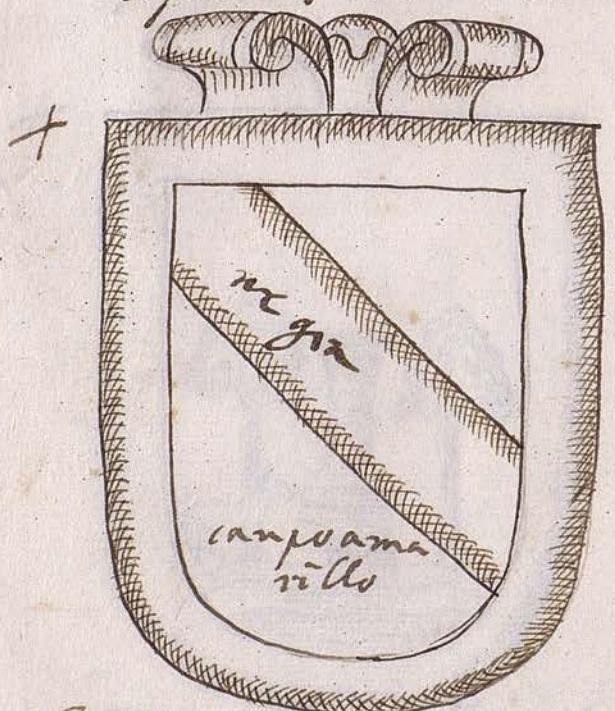 negra
canpo ama
rillo